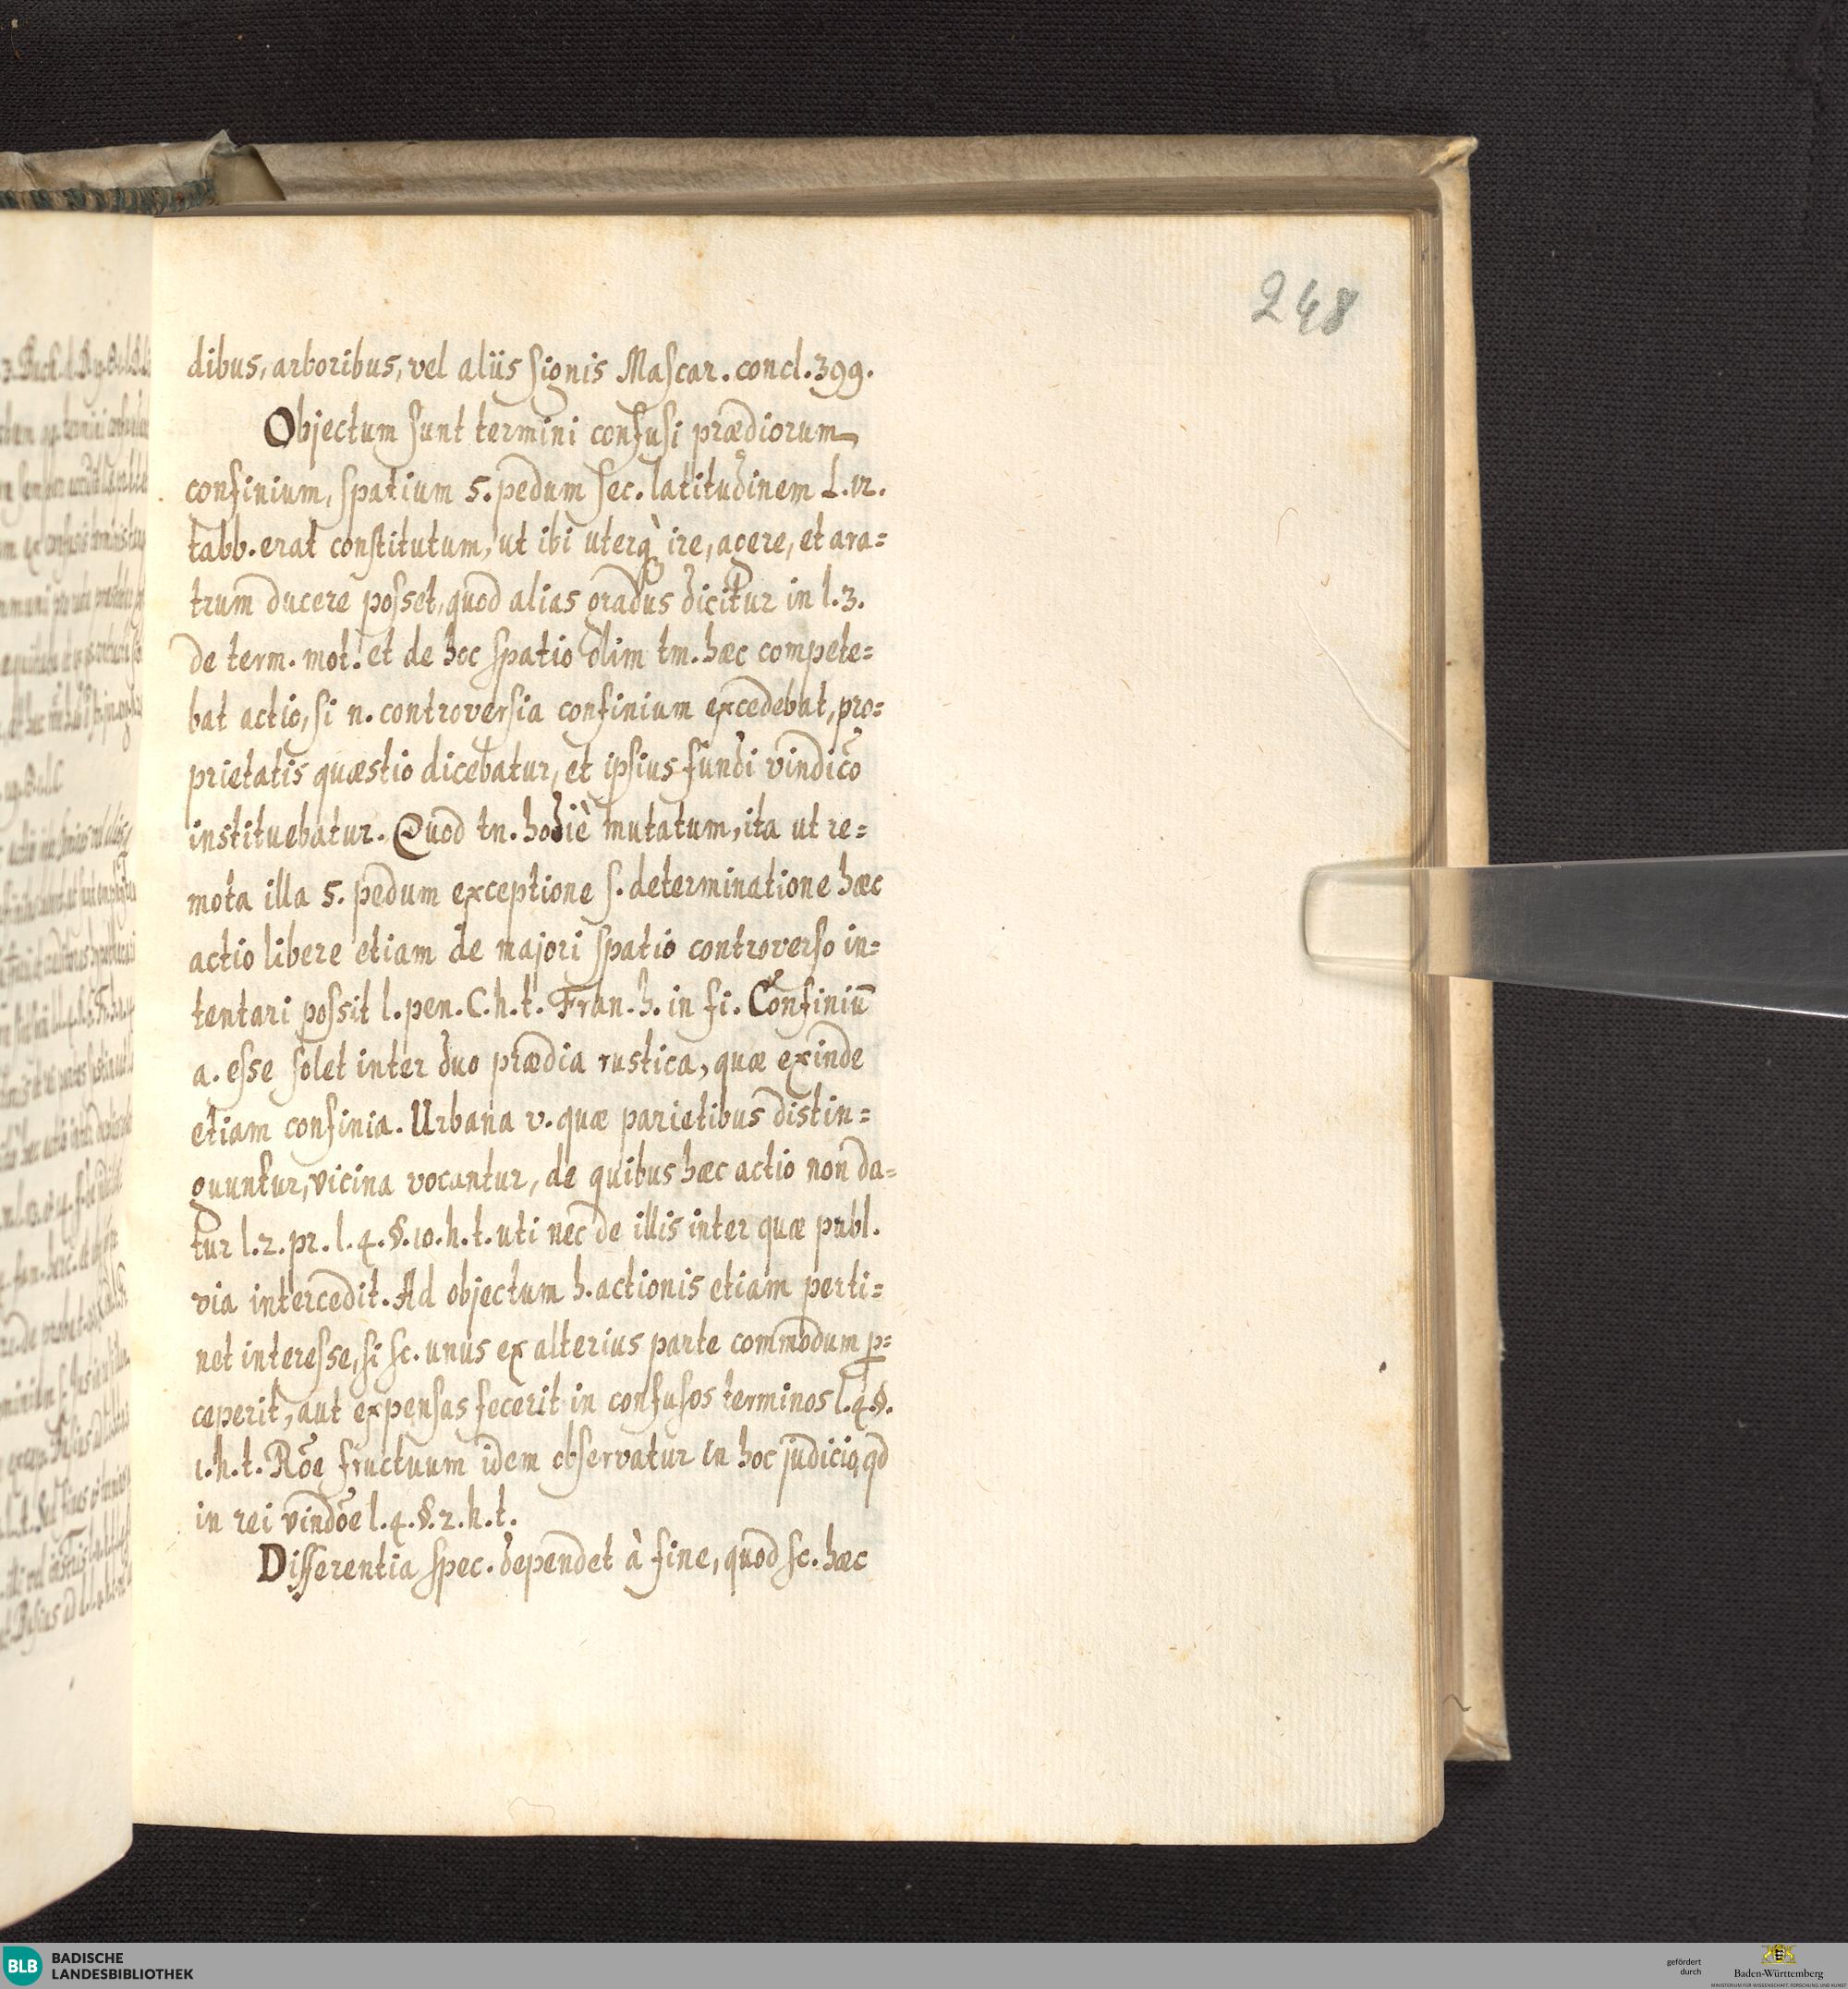 248
dibus, arboribus, vel aliis signis Mascar. concl. 399.
Objectum sunt termini confusi prædiorum,
confinium, spatium 5. pedum sec. latitudinem L. 12.
tabb. erat constitutum, ut ibi uterq̀ ire, agere, et ara=
trum ducere posset, quod alias gradus dicitur in l. 3.
de term. mot. et de hoc spatio olim tm. hæc compete=
bat actio, si n. controversia confinium excedebat, pro=
prietatis quæstio dicebatur, et ipsius fundi vindicō
instituebatur. Quod tn. hodiè mutatum, ita ut re=
mota illa 5. pedum exceptione s. determinatione hæc
actio libere etiam de majori spatio controverso in=
tentari possit l. pen. C. h. t. Fran. h. in fi. Confiniū
a. esse solet inter duo prædia rustica, quæ exinde
etiam confinia. Urbana v. quæ parietibus distin=
guuntur, vicina vocantur, de quibus hæc actio non da=
tur l. 2. pr. l. 4. §. 10. h. t. uti nec de illis inter quæ publ.
via intercedit. Ad objectum h. actionis etiam perti=
net interesse, si sc. unus ex alterius parte commodum p=
ceperit, aut expensas fecerit in confusos terminos l. 4. §.
1. h. t. Rōe fructuum idem observatur in hoc judicio, qd
in rei vindōe l. 4. §. 2. h. t.
Differentia spec. dependet à fine, quod sc. hæc
BLB BADISCHE
LANDESBIBLIOTHEK
gefördert
durch
Baden-Württemberg
MINISTERIUM FÜR WISSENSCHAFT, FORSCHUNG UND KUNST